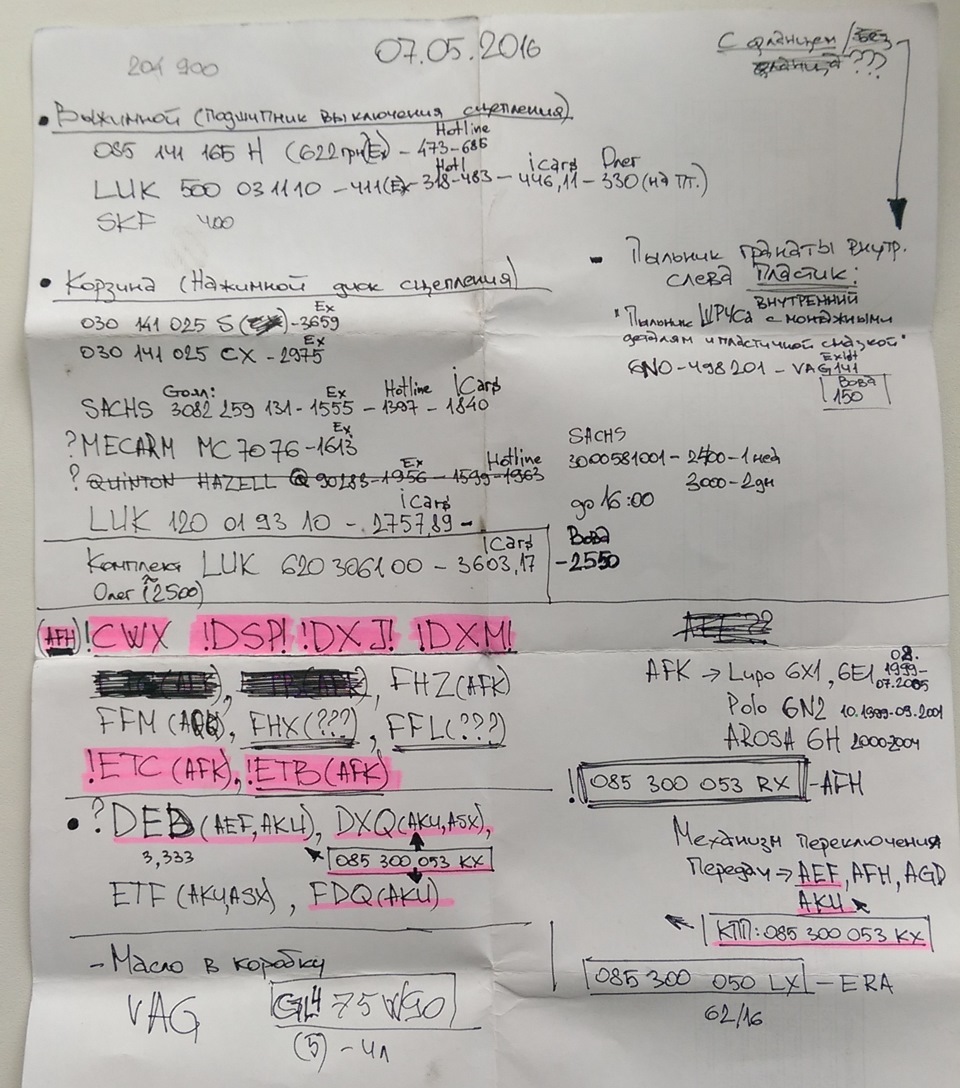 07.05.2016
201 900
С фланцем/без
фланца???
• Выжимной (Подшипник выключения сцепления)
Hotline
085 141 165 H (622грн)(Ex) - 473-685
Hotl icars Олег
LUK 500 031110 - 411(Ex - 318-483 - 446,11 - 330 (на пт.)
SKF 400
• Корзина (Нажимной диск сцепления)
Ex
030 141 025 S - 3659
Ex
030 141 025 CX - 2975
Голл: Ex Hotline iCars
SACHS 3082 259 131 - 1555 - 1397 - 1840
Ex
? MECARM MC 7076 - 1613
Ex Hotline
? QUINTON HAZELL Q 90283 - 1956 - 1599 - 1963
iCars
LUK 120 01 93 10 - 2757,89 -
iCars
Комплект LUK 620 3061 00 - 3603,17
Олег (~2500)
- Пыльник гранаты внутр.
слева Пластик:
ВНУТРЕННИЙ
"Пыльник ШРУСа с монтажными
деталям и пластичной смазкой"
Exist
6N0-498 201 - VAG 141
Вова
150
SACHS
3000581001 - 2400 - 1 нед
3000 - 2 дн
до 16:00
Вова
- 2550
(AFH) !CWX !DSP! !DXJ! !DXM!
FHZ (AFK)
FFM, FHX (???), FFL (???)
!ETC (AFK), !ETB (AFK)
• ? DEB (AEF, AKU), DXQ (AKU, ASX),
3,333
085 300 053 KX
ETF (AKU, ASX), FDQ (AKU)
- Масло в коробку
VAG GL4 75W90
(5) - 4л
AFK → Lupo 6X1, 6E1 08.1999-
07.2005
Polo 6N2 10.1999-09.2001
AROSA 6H 2000-2004
! 085 300 053 RX - AFH
Механизм переключения
Передач → AEF, AFH, AGD
AKU
КПП: 085 300 053 KX
085 300 050 LX - ERA
62/16